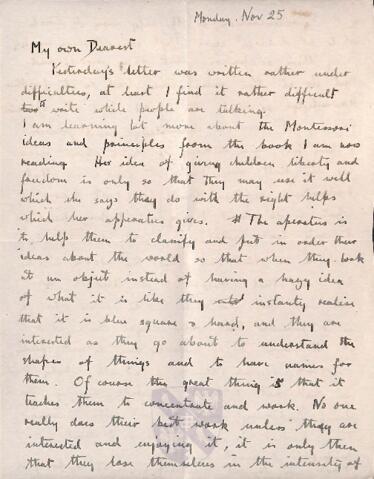 Monday. Nov 25
My own Dearest
Yesterday's letter was written rather under
difficulties, at least I find it rather difficult
to write while people are talking.
I am learning lot more about the Montessori
ideas and principles from the book I am now
reading. Her idea of giving children liberty and
freedom is only so that they may use it well
which she says they do with the right helps
which her apparatus gives. The aperatus is
to help them to classify and put in order their
ideas about the world so that when they look
at an object instead of having a hazy idea
of what it is like they instantly realise
that it is blue square & hard, and they are
interested as they go about to understand the
shapes of things and to have names for
them. Of course the great thing is that it
teaches them to concentrate and work. No one
really does their best work unless they are
interested and enjoying it, it is only then
that they lose themselves in the intensity of